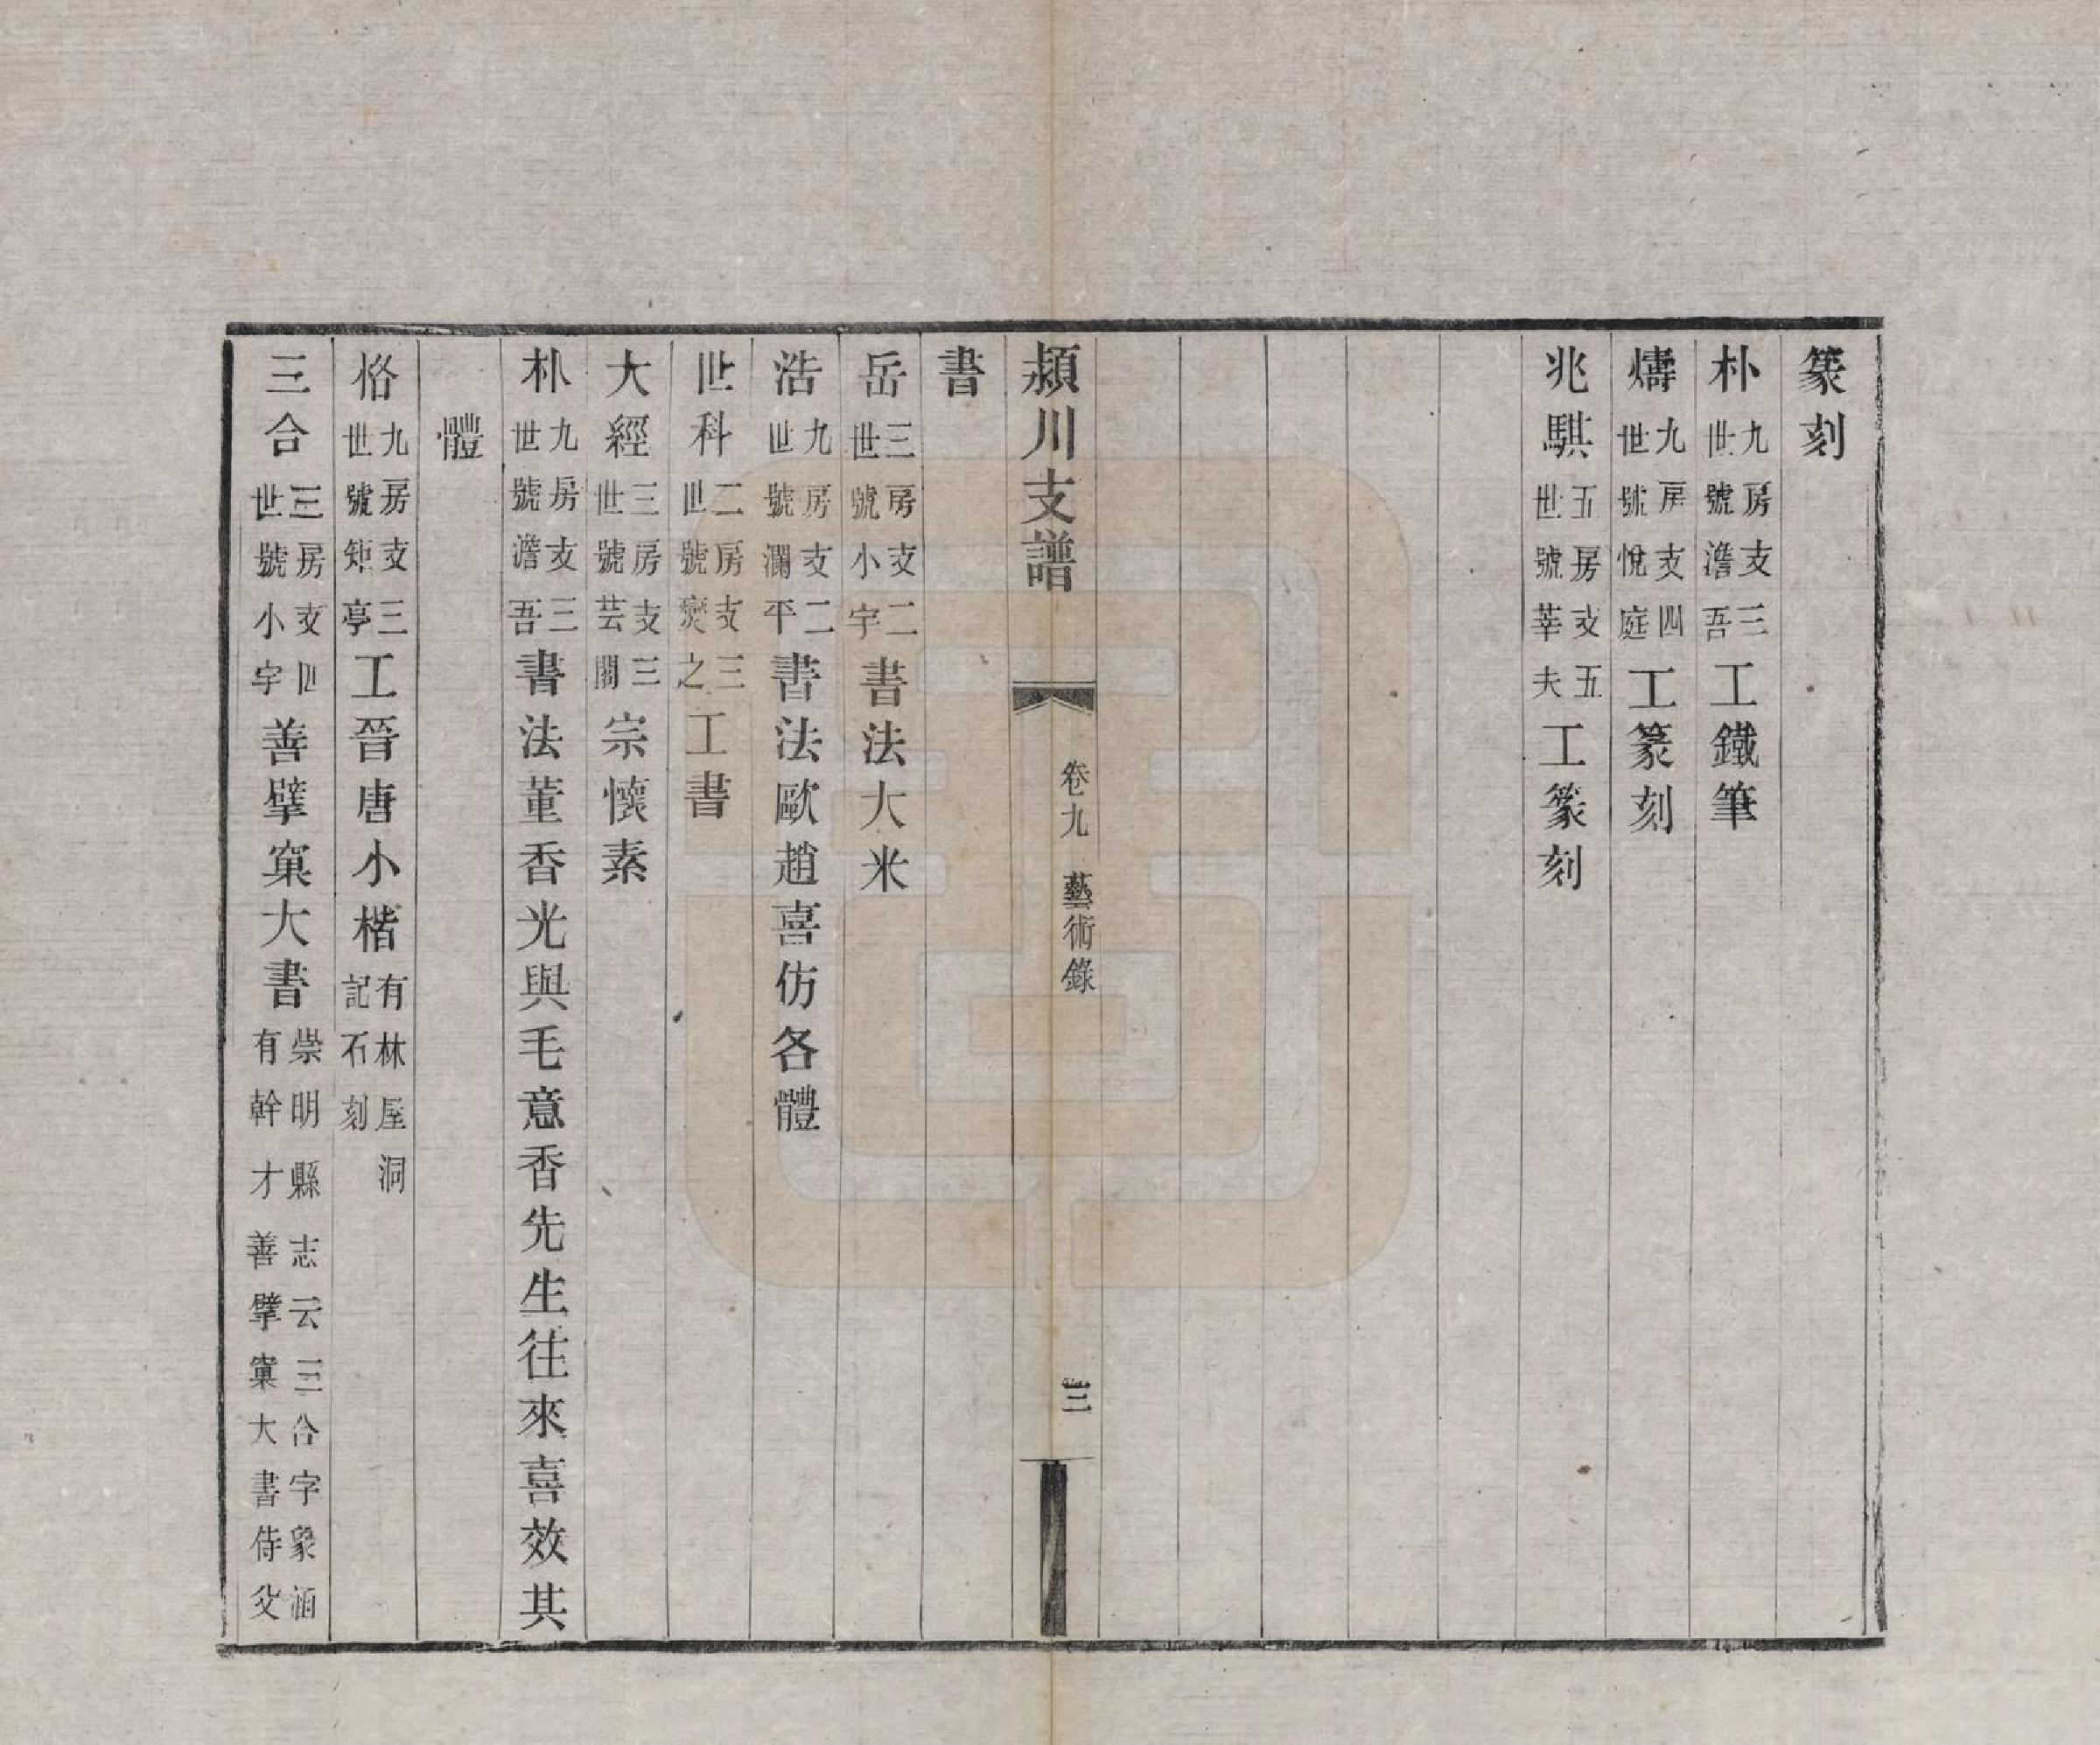 篆刻
朴九房支三世號澹吾工鐵筆
燽九房支四世號悅庭工篆刻
兆騏五房支五世號莘夫工篆刻
潁川支譜 卷九 藝術錄 三
書
岳三房支二世號小宇書法大米
浩九房支二世號瀾平書法歐趙喜仿各體
世科二房支三世號爕之工書
大經三房支三世號芸閣宗懷素
朴九房支三世號澹吾書法董香光與毛意香先生往來喜效其
體
恪九房支三世號矩亭工晉唐小楷有林屋洞記石刻
三合三房支四世號小宇善擘窠大書崇明縣志云三合字象涵有幹才善擘窠大書侍父